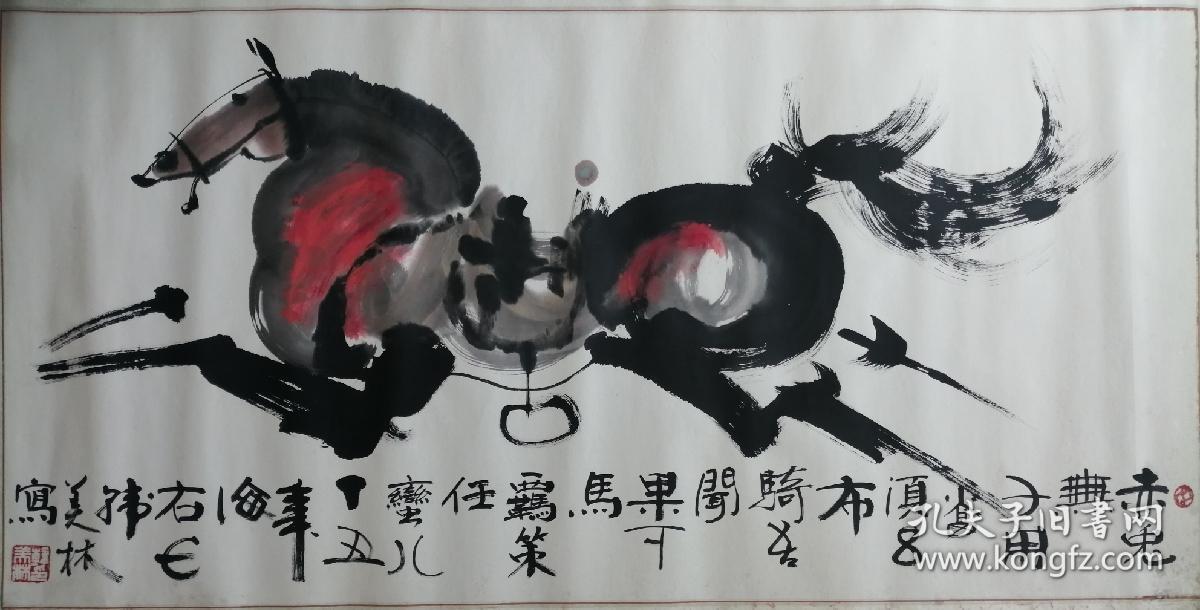 赤兔無人用當須呂布騎吾聞果下馬羈策任蠻儿丁丑年海右韓美林寫
孔夫子旧书网
www.kongfz.com